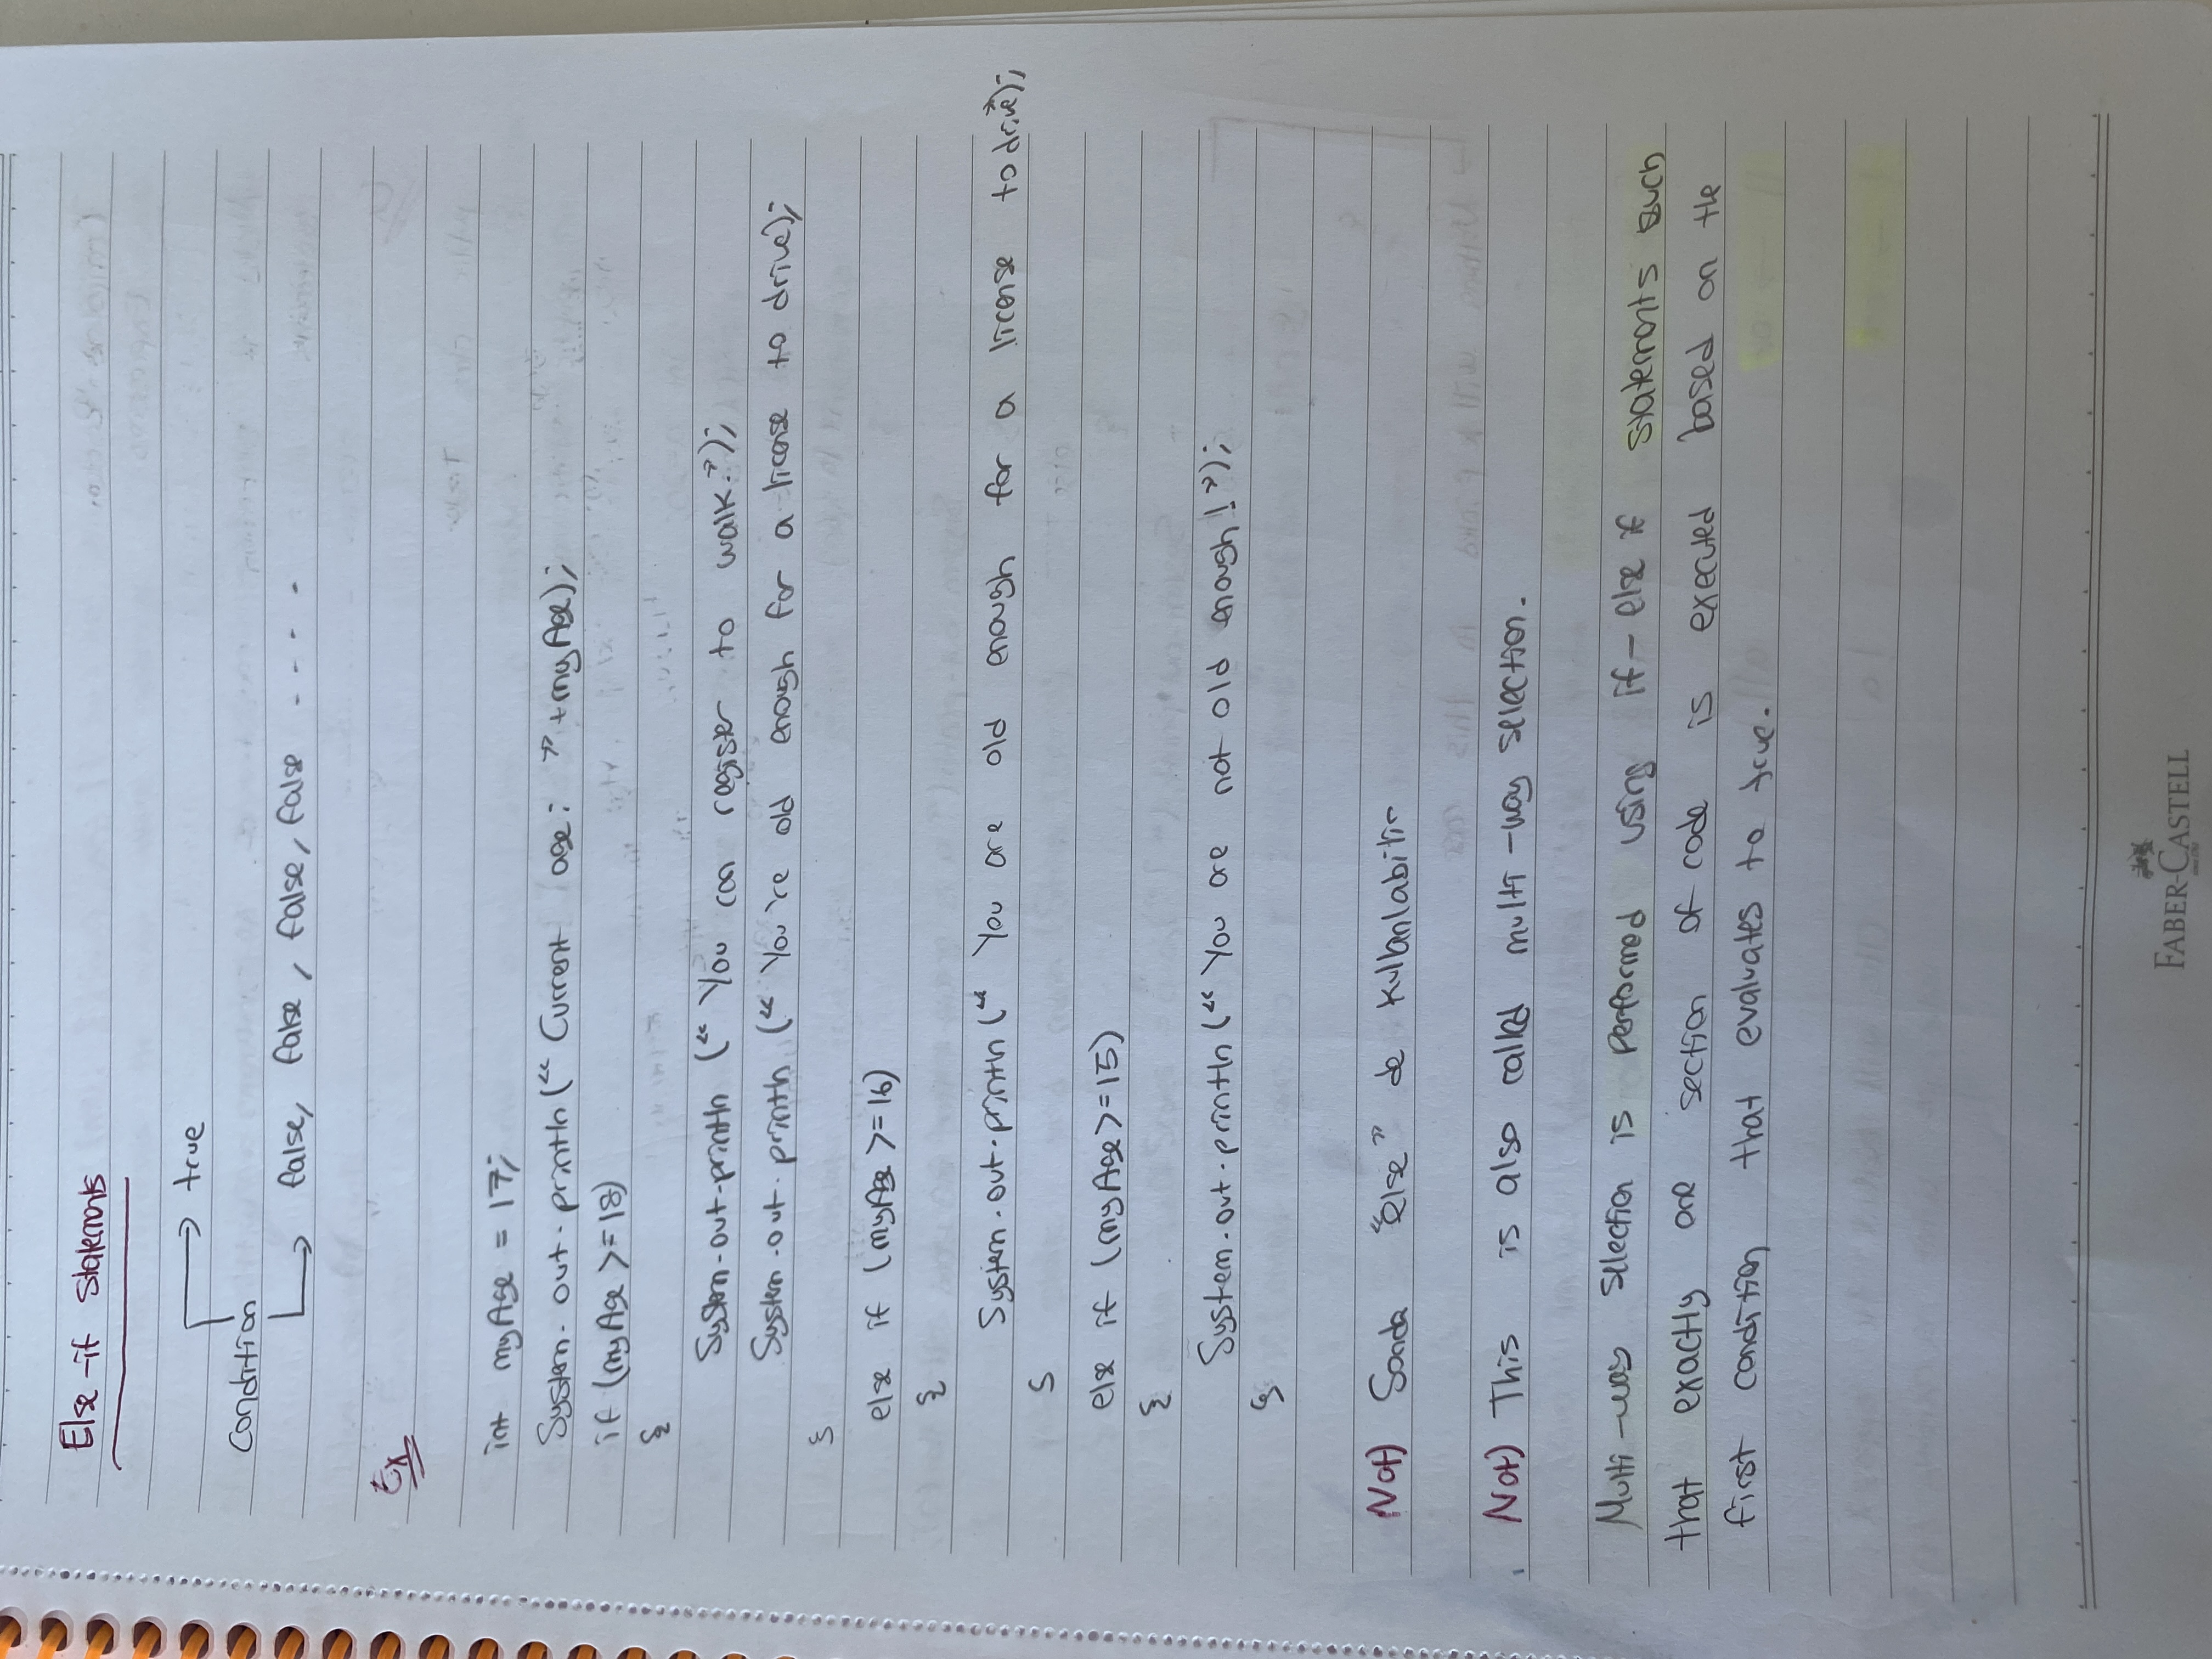 Else-if Statements
true
Condition
false, false, false, false - - - -
Ex
int myAge = 17;
System.out.println(“ Current age: ” + myAge);
if (myAge >= 18)
{
System.out.println (“ You can register to walk.”);
System.out.println (“ You're old enough for a license to drive);
}
else if (myAge >= 16)
{
System.out.println (“ You are old enough for a license to drive”);
}
else if (myAge >= 15)
{
System.out.println (“ You are not old enough! ”);
}
Not) Sonda “else” de kullanılabilir
Not) This is also called multi-way selection.
Multi-way selection is performed using if-else if statements such
that exactly one section of code is executed based on the
first condition that evaluates to true.
FABER-CASTELL
since 1761